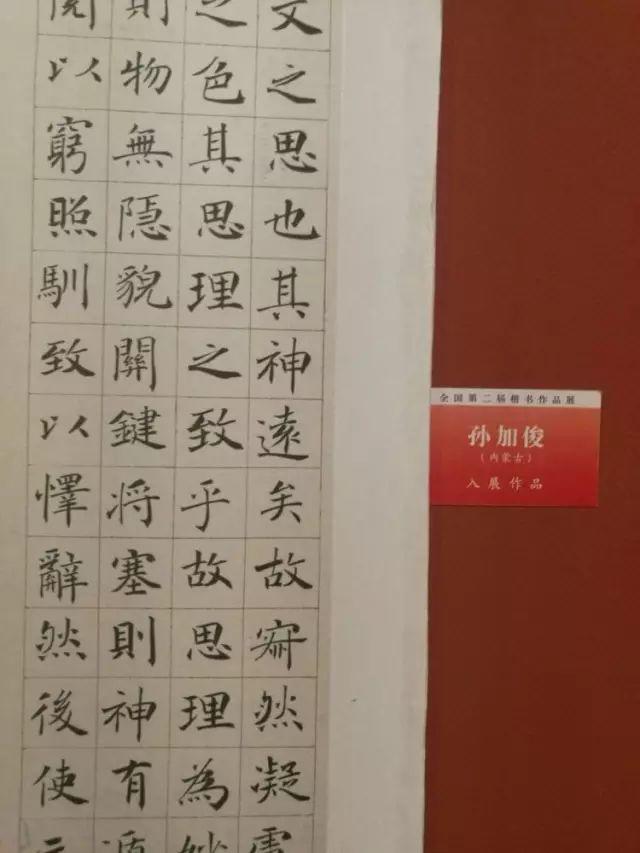 文之思也其神遠矣故寂然凝慮
之色其思理之致乎故思理為妙
則物無隐貌關鍵将塞則神有遁
閱以窮照馴致以懌辭然後使
全国第二届楷书作品展
孙加俊
(内蒙古)
入展作品